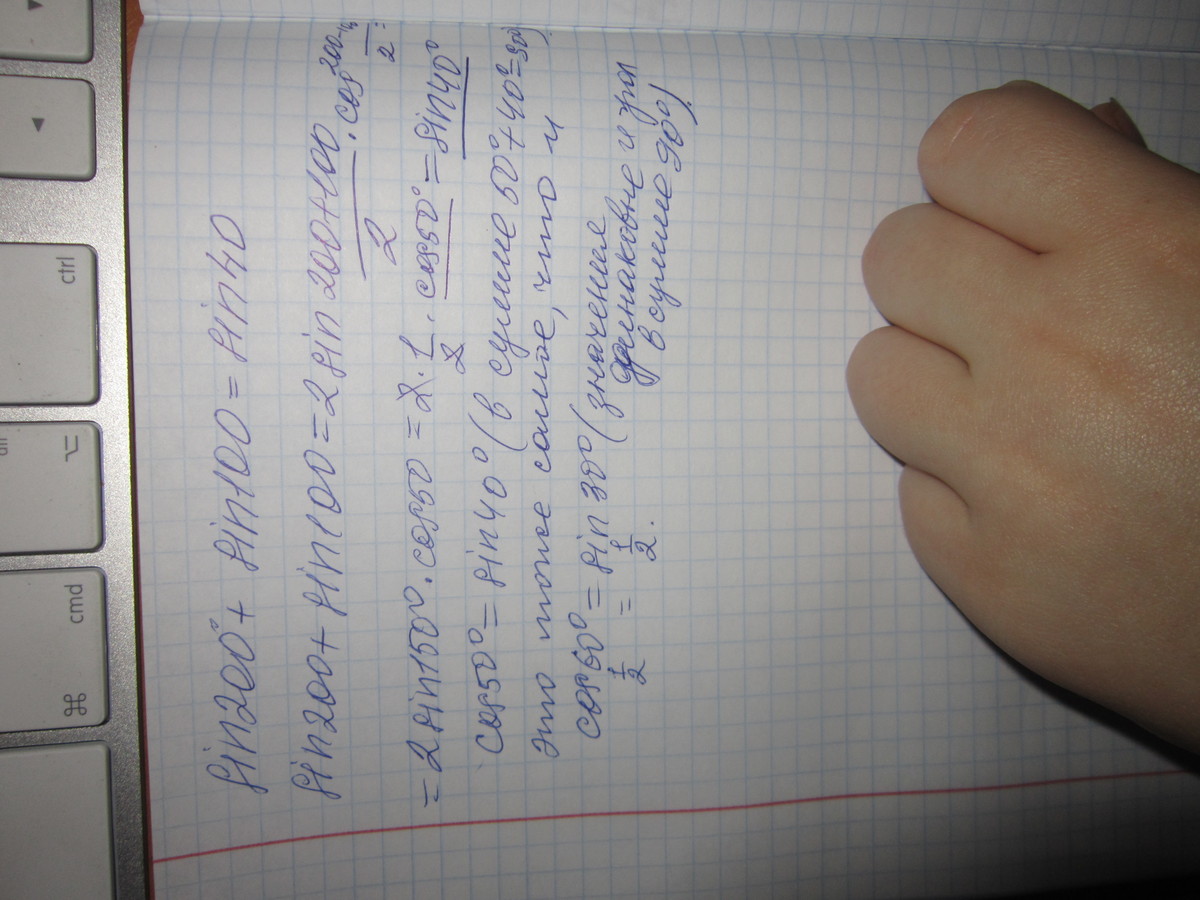 sin200°+ sin100 = sin40
sin200+ sin100 = 2 sin 200+100/2 · cos 200-10/2 =
= 2 sin150° · cos50 = 2 · 1/2 · cos50° = sin40°
cos50° = sin40° (в сумме 50°+40°=90°)
это тоже самое, что и
cos60° = sin 30° (значения
1/2 = 1/2. одинаковые и гра
в сумме 90°)
ctrl
alt
⌥
cmd
⌘